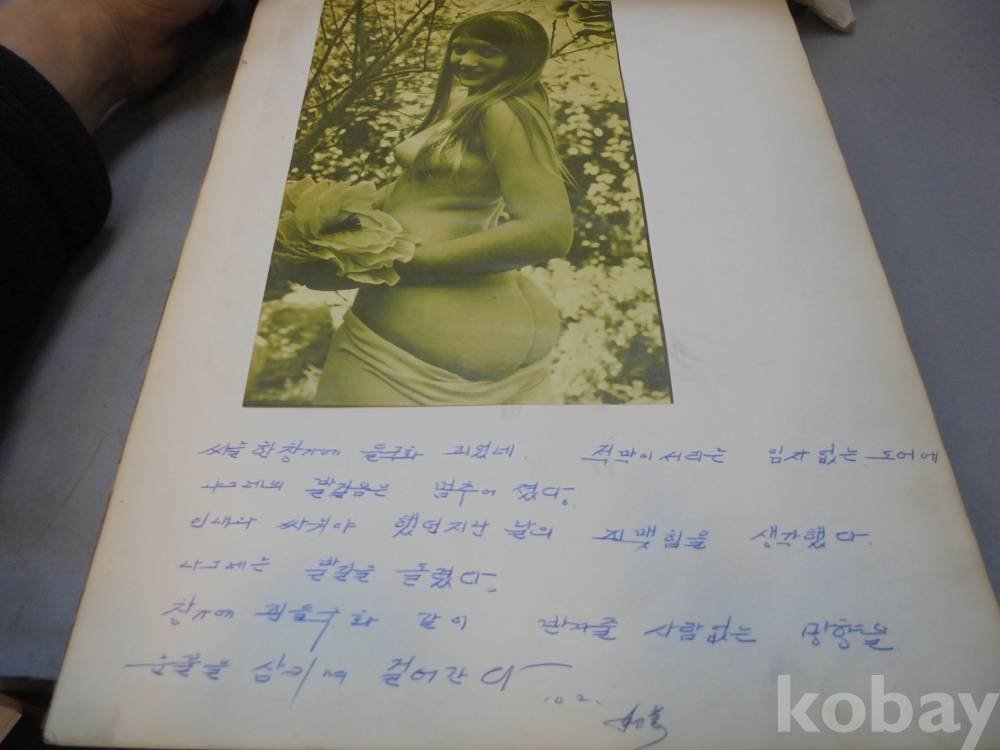 창가에 들국화 피었네. 적막이 서리는 임자 없는 도어에
나그네의 발걸음은 멈추어 섰다.
싸워야 했던 지난 날의 짓밟힘을 생각했다.
나그네는 발길을 돌렸다.
창가에 핀 들국화 같이 반겨줄 사람 없는 망향을
삼키며 걸어간다
.02.
kobay